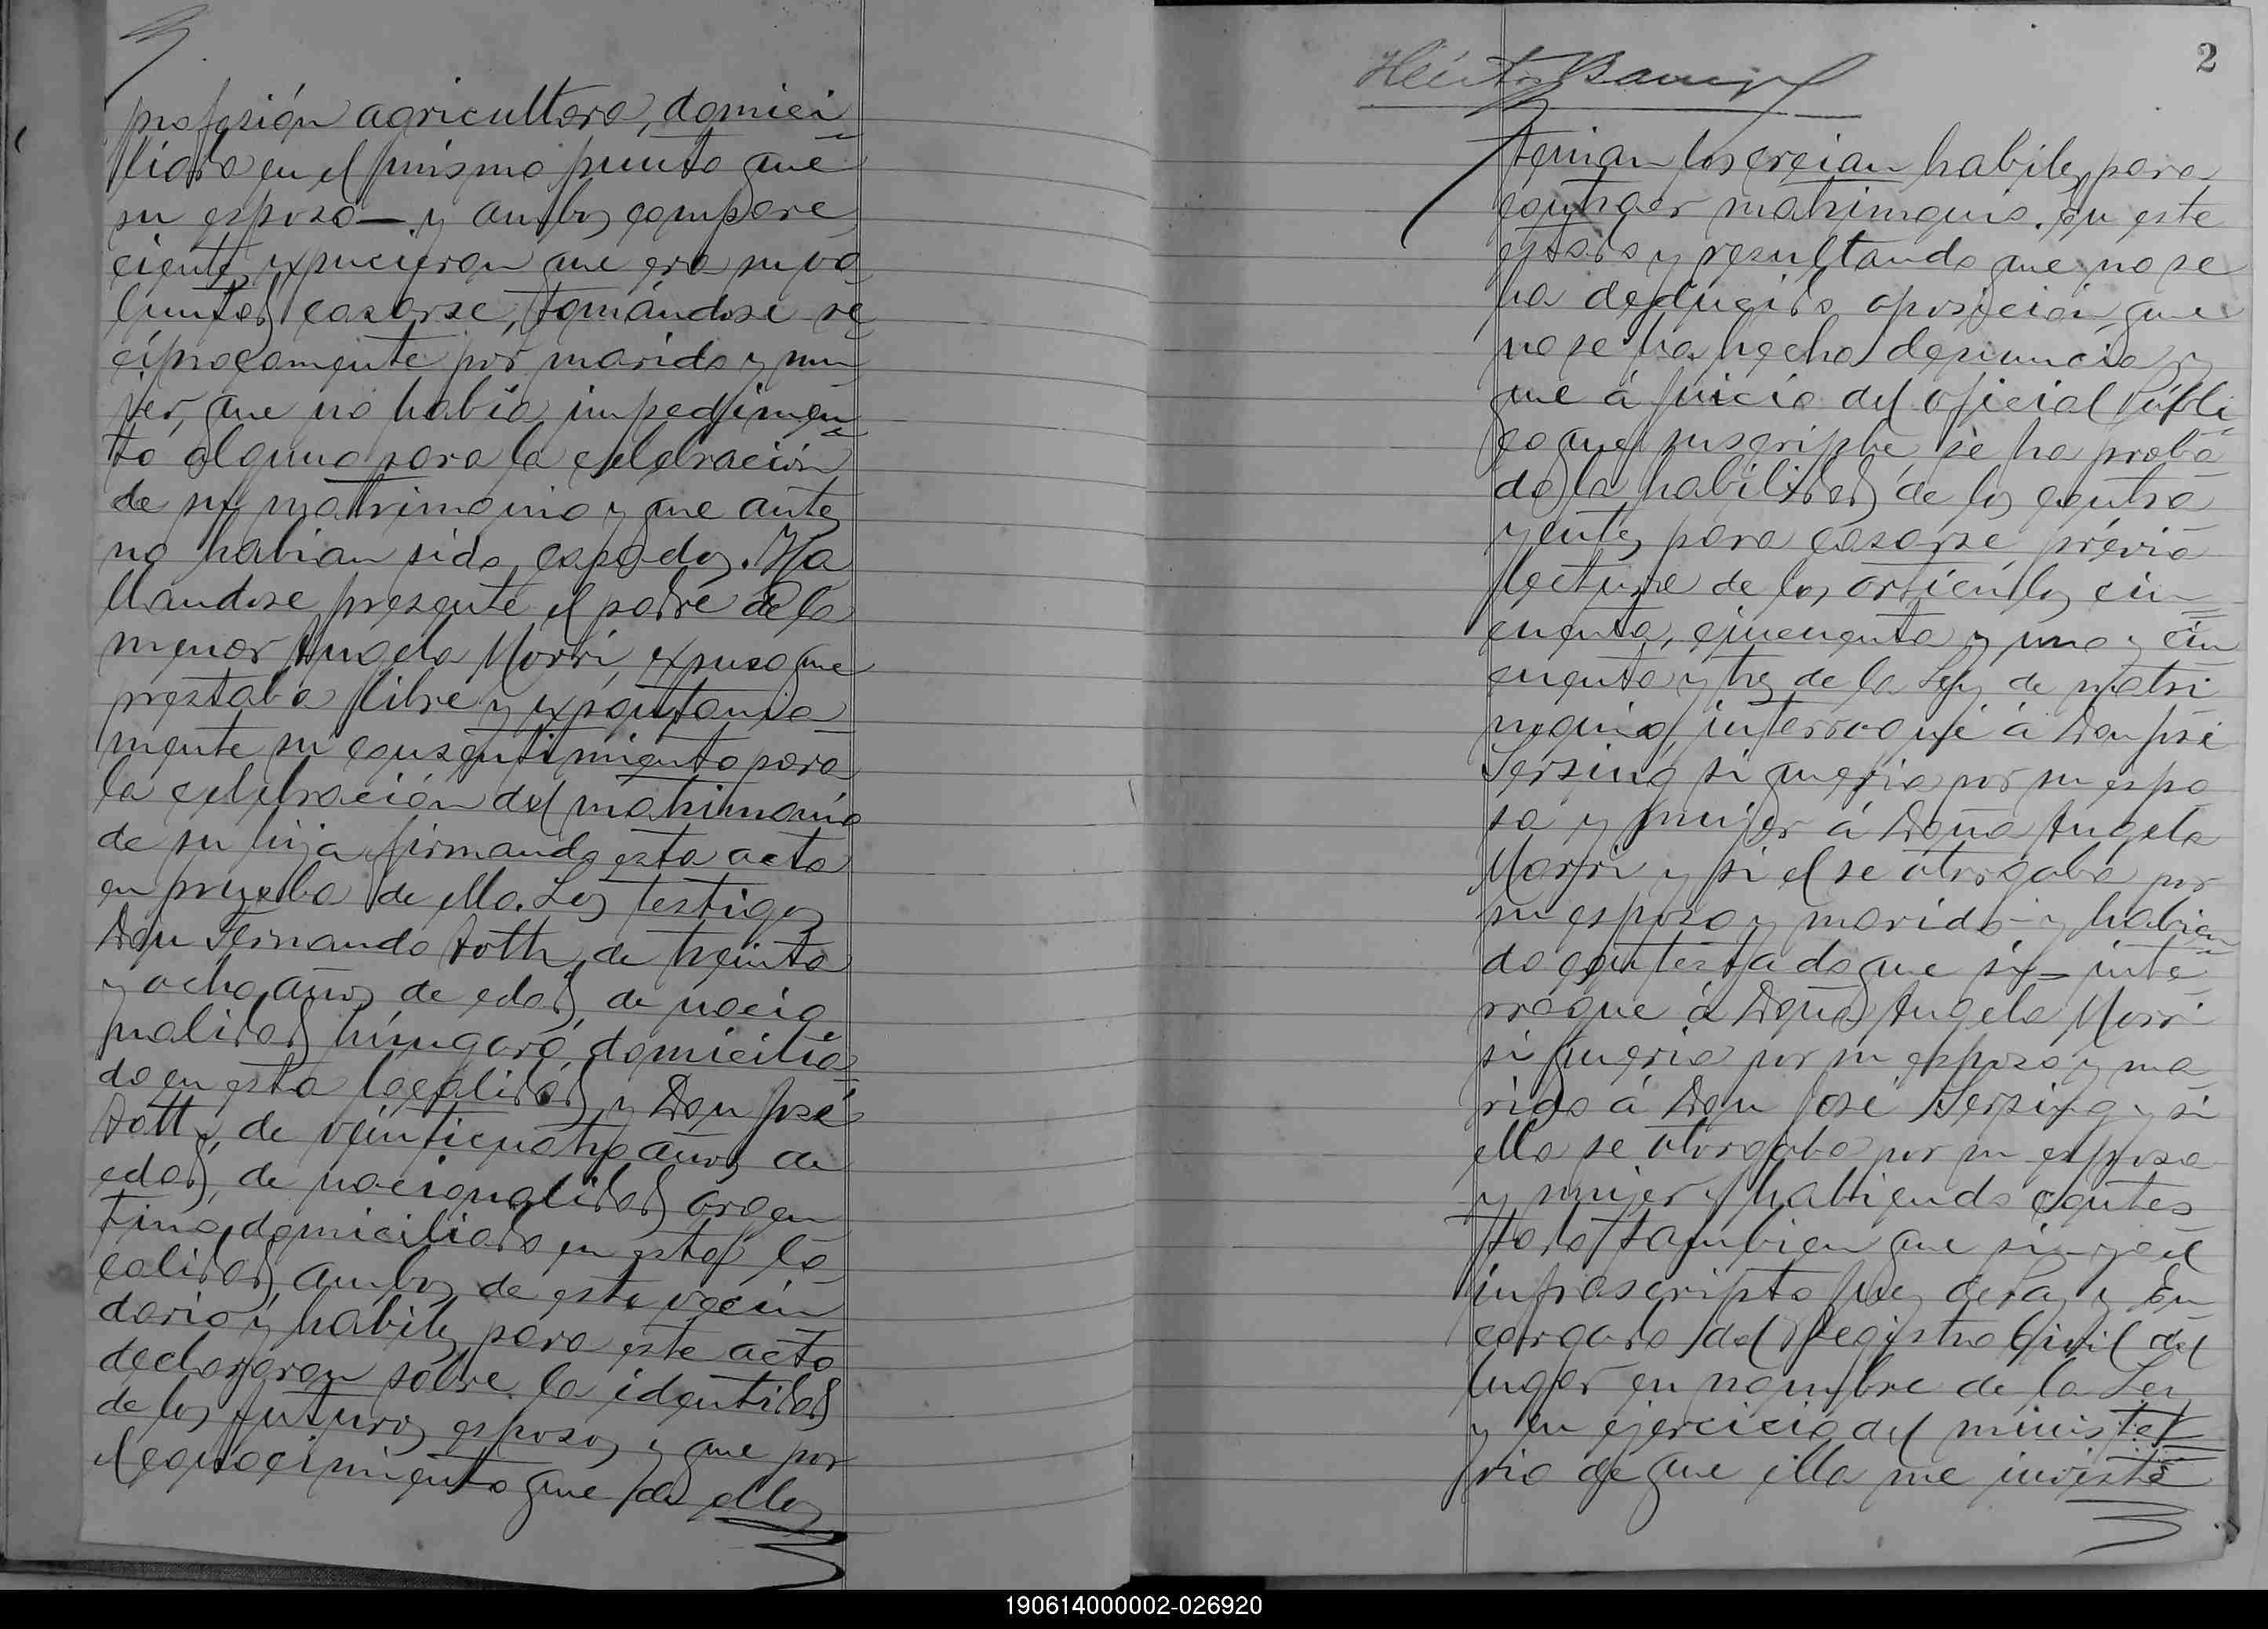 profesión agricultora, domici
liada en el mismo punto que
su esposo — y ambos compare
cientes expucieron que era su vo
luntad casarse, tomándose re
ciprocamente por marido y mu
jer, que no había impedimen
to alguno para la celebración
de su matrimonio y que antes
no habian sido casados. Ha
llandose presente el padre de la
menor Angela Morri, expuso que
prestaba libre y expontania
mente su consentimiento para
la celebración del matrimonio
de su hija firmando esta acta
en prueba de ello. Los testigos
Don Fernando Toth, de treinta
y ocho años de edad, de nacio
nalidad húngaro, domicilia
do en esta localidad y Don José
Toth, de veinticuatro años de
edad, de nacionalidad argen
tino, domiciliado en esta lo
calidad, ambos de este vecin
dario y habiles para este acto
declararon sobre la identidad
de los futuros esposos y que por
el conocimiento que de ellos
2
Héctor
tenian los creian habiles para
contraer matrimonio. En este
estado y resultando que no se
ha deducido oposición, que
no se ha hecho denuncia y
que á juicio del oficial Públi
co que suscriphe, se ha proba
do la habilidad de los contra
yentes para casarse, prévia
lectura de los articulos cin
cuenta, cincuenta y uno y cin
cuenta y tres de la Ley de matri
monio, interrogué á Don José
Sersing si queria por su espo
sa y mujer á Doña Angela
Morri y si el se otorgaba por
su esposo y marido - y habien
do contestado que si — inte
rrogue á Doña Angela Morri
si queria por su esposo y ma
rido á Don José Sersing y si
ella se otorgaba por su esposa
y mujer y habiendo contes
tado tambien que si - yo el
infrascripto Juez de Paz y En
cargado del Registro Civil del
lugar en nombre de la Ley
y en ejercicio del ministe
rio de que ella me inviste
190614000002-026920